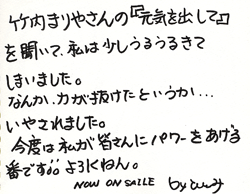 竹内まりやさんの『元気を出して』
を聞いて、私は少しうるうるきて
しまいました。
なんか、力が抜けたというか…
いやされました。
今度は私が皆さんにパワーをあげる
番です。。よろくねん。
NOW ON SALLE by